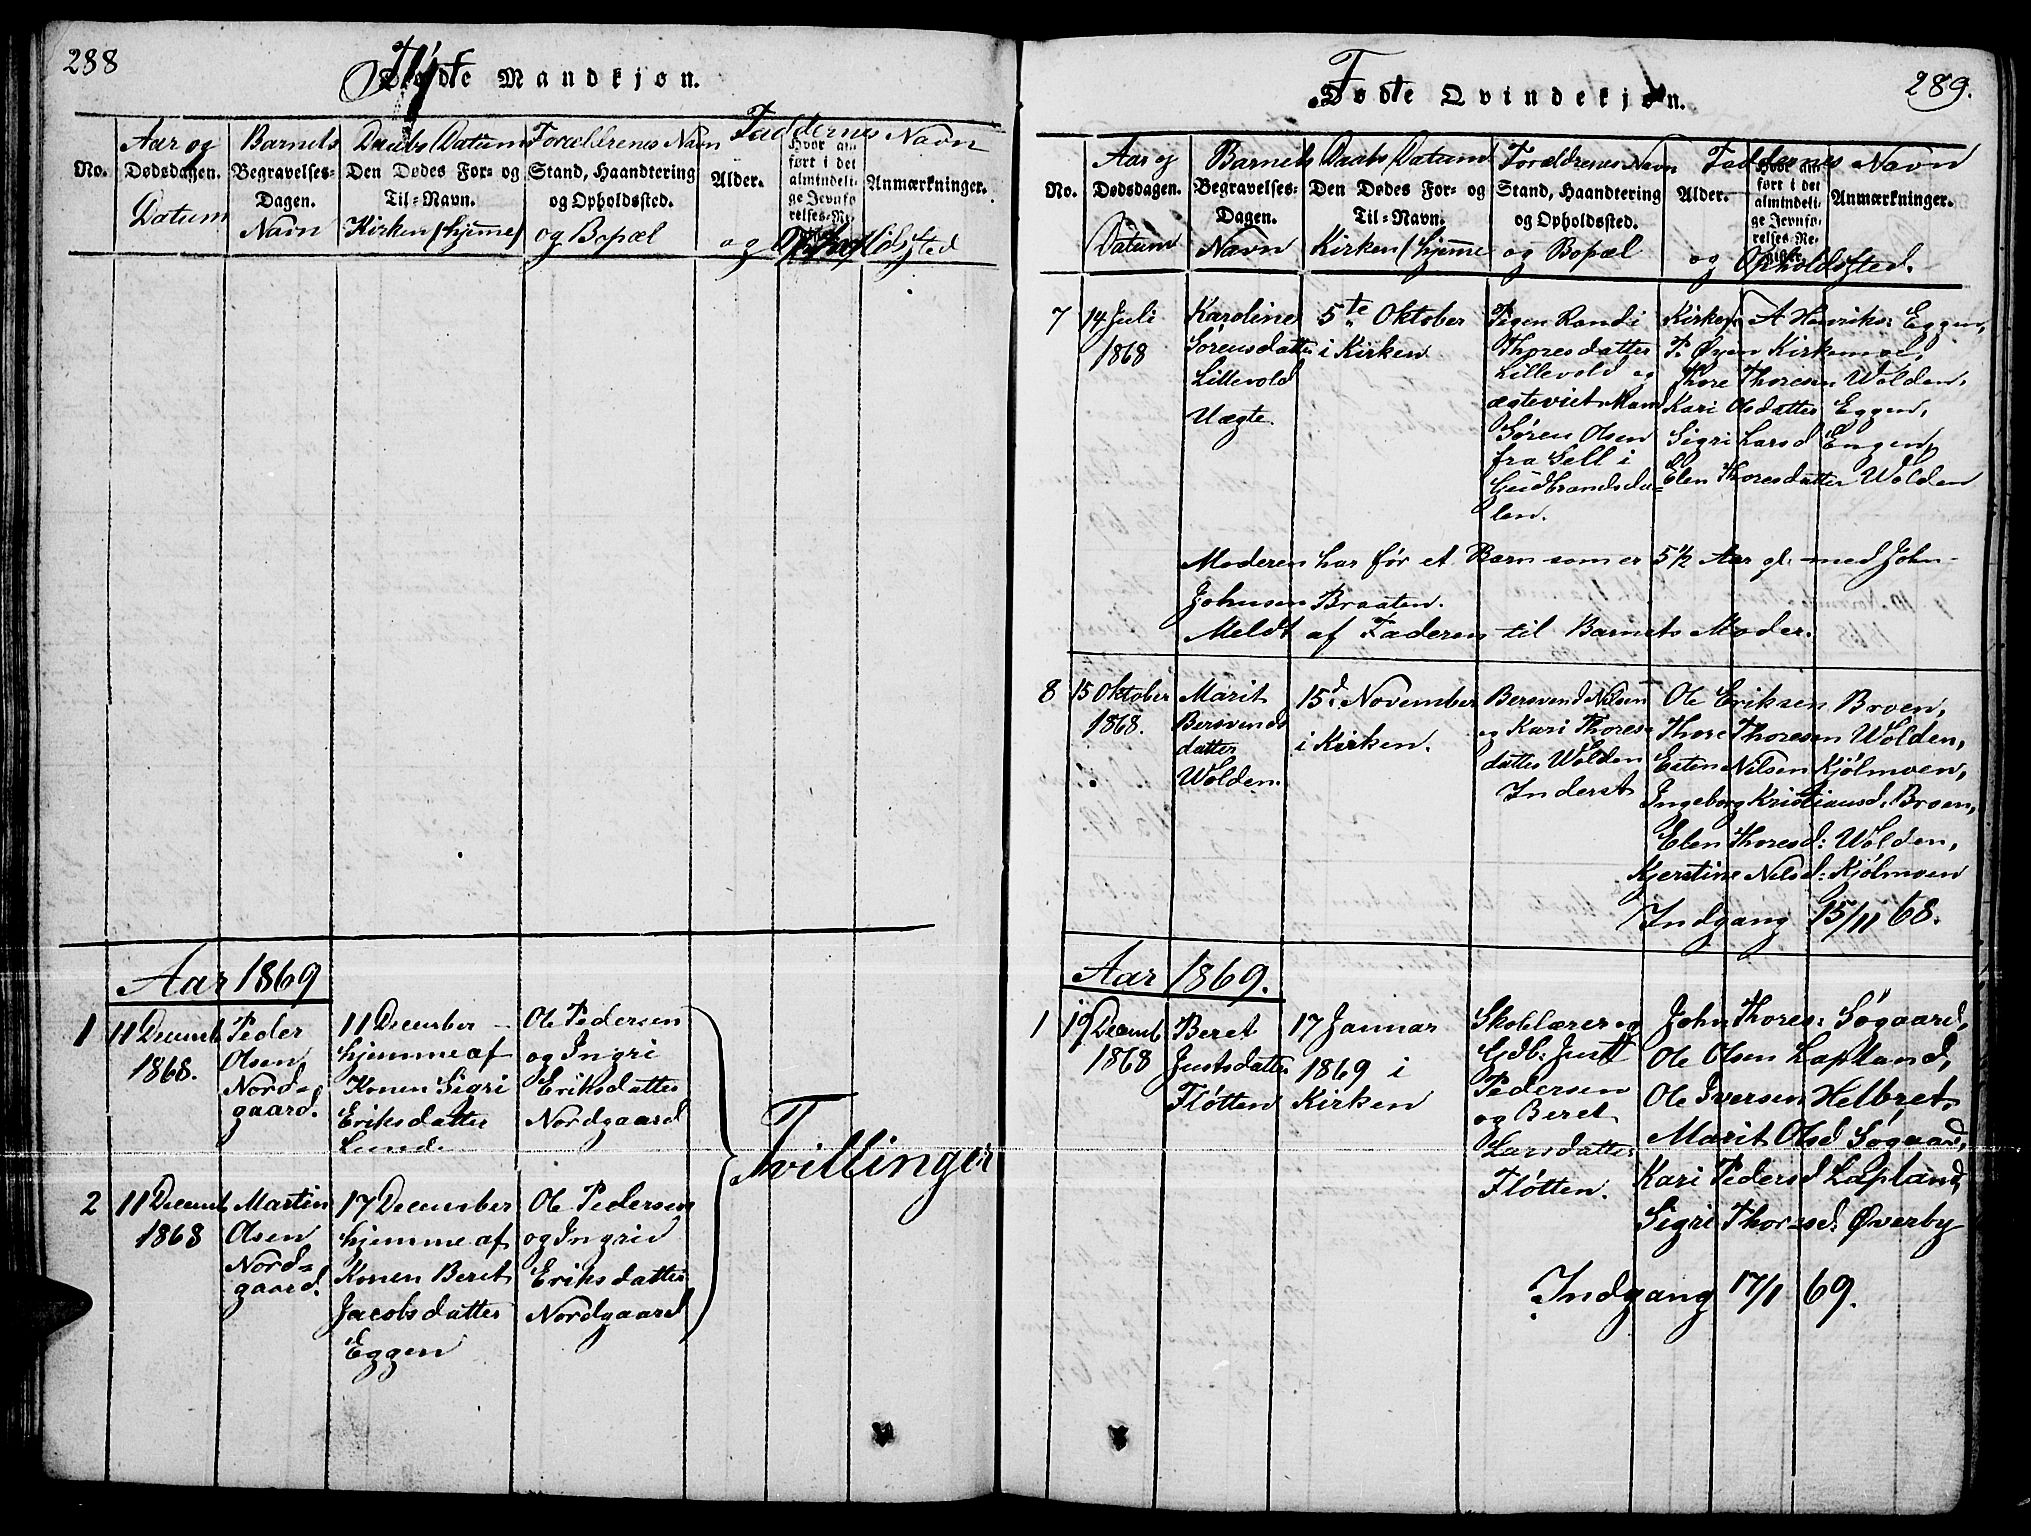 288
Fødte Mandkjøn.
Faddernes Navn
Aar og Barnets Daabs Datum Forældrenes Navn
No. Dødsdagen. Begravelses-Dagen. Den Dødes For- og Til-Navn. Stand, Haandtering og Opholdssted. Alder. Hvor anført i det almindelige Jevnførelses-Re- Anmærkninger.
Datum Navn Kirken (hjemme) og Bopæl og Opholdssted
Aar 1869
1 11 Decemb
1868.
Peder
Olsen
Nord=
gaard.
11 December
hjemme af
Konen Sigri
Eriksdatter
Lund.
Ole Pedersen
og Ingri
Eriksdatter
Nordgaard
Tvillinger
2 11 Decemb
1868
Martin
Olsen
Nord=
gaard.
17 December
hjemme af
Konen Beret
Jacobsdatter
Eggen
Ole Pedersen
og Ingrid
Eriksdatter
Nordgaard
289.
Fødte Qvindekjøn.
Aar og Barnets Daabs Datum Forældrenes Navn Faddernes Navn
No. Dødsdagen. Begravelses-Dagen. Den Dødes For- og Til-Navn. Stand, Haandtering og Opholdssted. Alder. Hvor anført i det almindelige Jevnførelses-Re- Anmærkninger.
Datum Navn Kirken (hjemme og Bopæl og Opholdssted.
7 14 Juli
1868
Karoline
Sørensdatter
Lillevold
Uægte.
5te Oktober
i Kirken
Pigen Randi
Thoresdatter
Lillevold og
ægteviet Mand
Søren Olsen
fra Sell i
Gudbrandsda=
len.
Kirkes: A Henriks: Eggen,
P. Øyen Kirkemoe,
Thore Thoresen Wolden,
Kari Olsdatter Eggen,
Sigri Larsd Engen,
Elen Thoresdatter Wolden
Moderen har før et Barn som er 5½ Aar gl. med John
Johnsen Braaten.
Meldt af Faderen til Barnets Moder.
8 15 Oktober
1868.
Marit
Bersvends
datter
Wolden.
15d November
i Kirken.
Bersvend Nilsen
og Kari Thores=
datter Wolden
Inderst
Ole Eriksen Broen,
Thore Thoresen Wolden,
Esten Nilsen Kjølmoen,
Ingeborg Kristiansd. Broen,
Elen Thoresd: Wolden,
Kjerstine Nilsd: Kjølmoen
Indgang 15/11 68.
Aar 1869.
1 19 Decemb
1868
Beret
Justsdatter
Fløtten
17 Januar
1869 i
Kirken
Skolelærer og
Gdb: Just
Pedersen
og Beret
Larsdatter
Fløtten.
John Thores: Søgaard,
Ole Olsen Lapland,
Ole Iversen Helbret,
Marit Olsd Søgaard,
Kari Pedersd Lapland,
Sigri Thoresd. Øverby
Indgang 17/1 69.